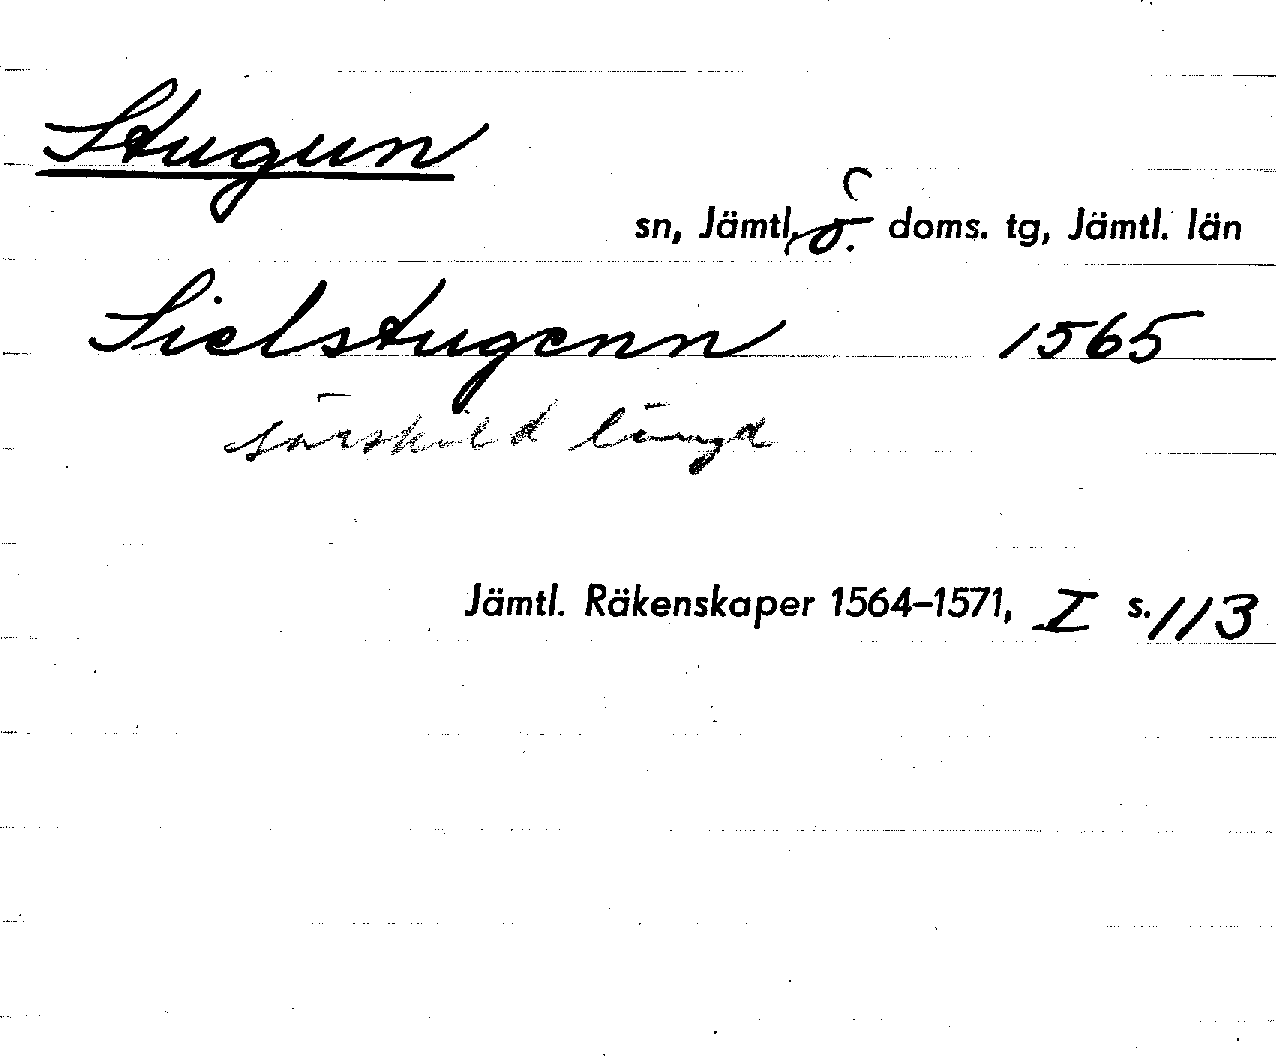 Stugun
sn, Jämtl, ö. doms. tg, Jämtl. län
Sielstugenn 1565
särskild längd
Jämtl. Räkenskaper 1564–1571, I s. 113